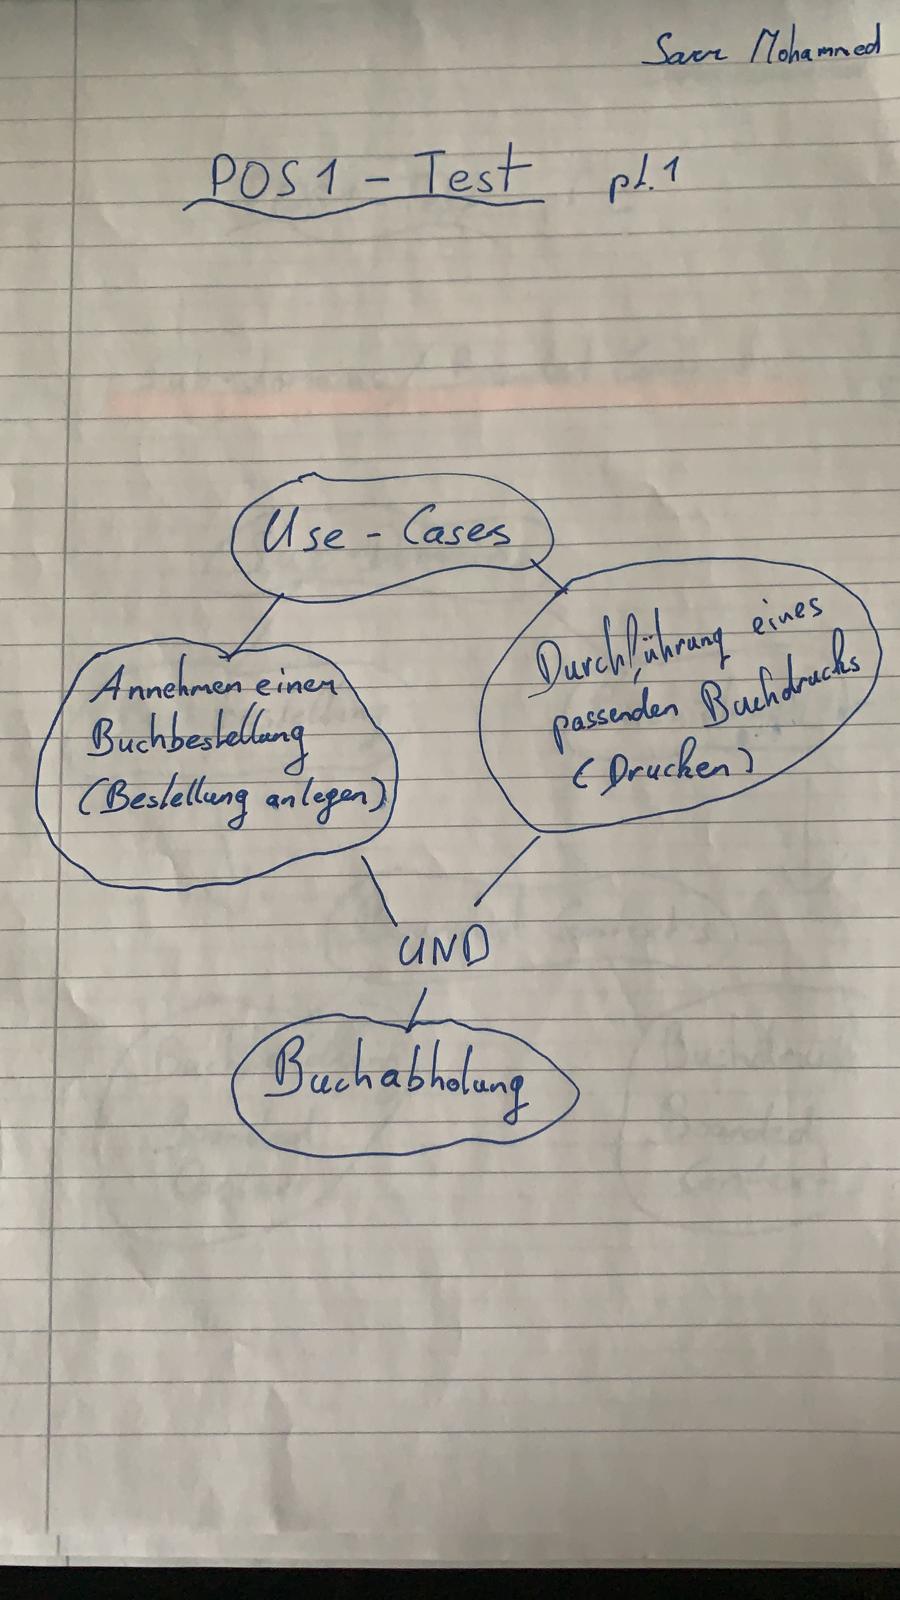 Sarr Mohammed
POS1 - Test pt.1
Use - Cases
Annehmen einer
Buchbestellung
(Bestellung anlegen)
Durchführung eines
passenden Buchdrucks
(Drucken)
UND
Buchabholung